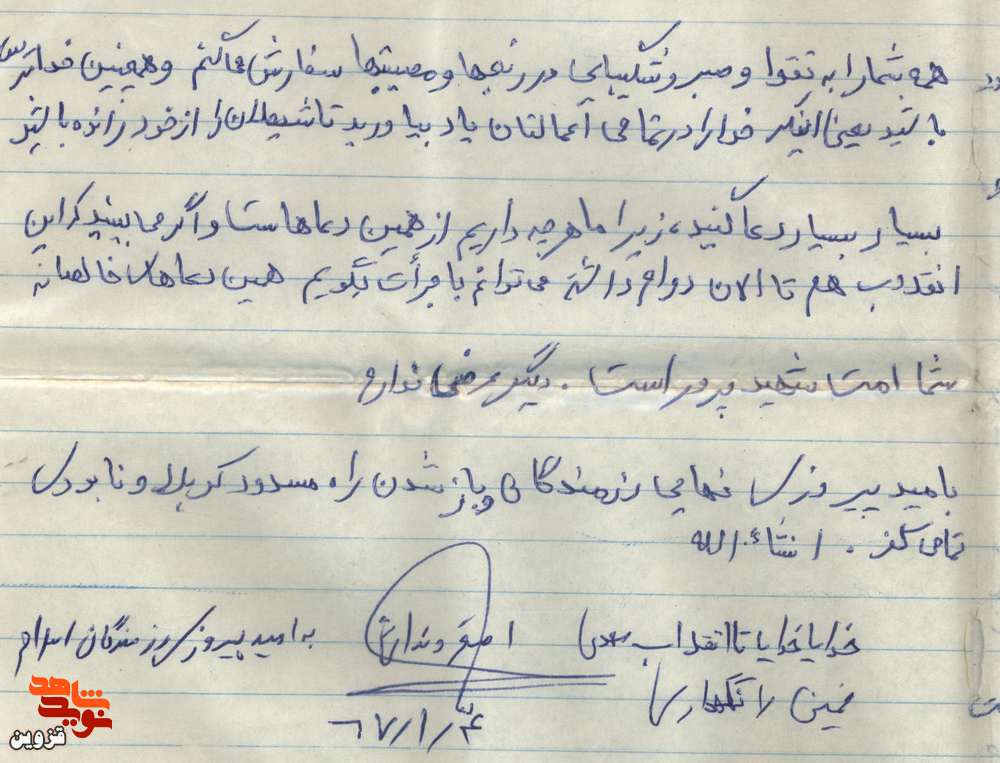 همه شما را به تقوا و صبر و شکیبایی در رنجها و مصیبتها سفارش می‌کنم و همچنین خداترس
باشید یعنی اینکه خدا را در تمامی اعمالتان یاد بیاورید تا شیطان را از خود رانده باشید
بسیار بسیار دعا کنید، زیرا ما هر چه داریم از همین دعاهاست و اگر می‌بینید که این
انقلاب هم تا الان دوام داشته می‌توانم با جرأت بگویم همین دعاهای خالصانه
شما امت شهیدپرور است. دیگر عرضی ندارم
بامید پیروزی نهایی رزمندگان و باز شدن راه مسدود کربلا و نابودی
تمامی کفر. انشاءالله
خدایا خدایا تا انقلاب مهدی
خمینی را نگهدار
اصغر
به امید پیروزی رزمندگان اسلام
۶۷/۱/۴
شاهد
نوید
قزوین